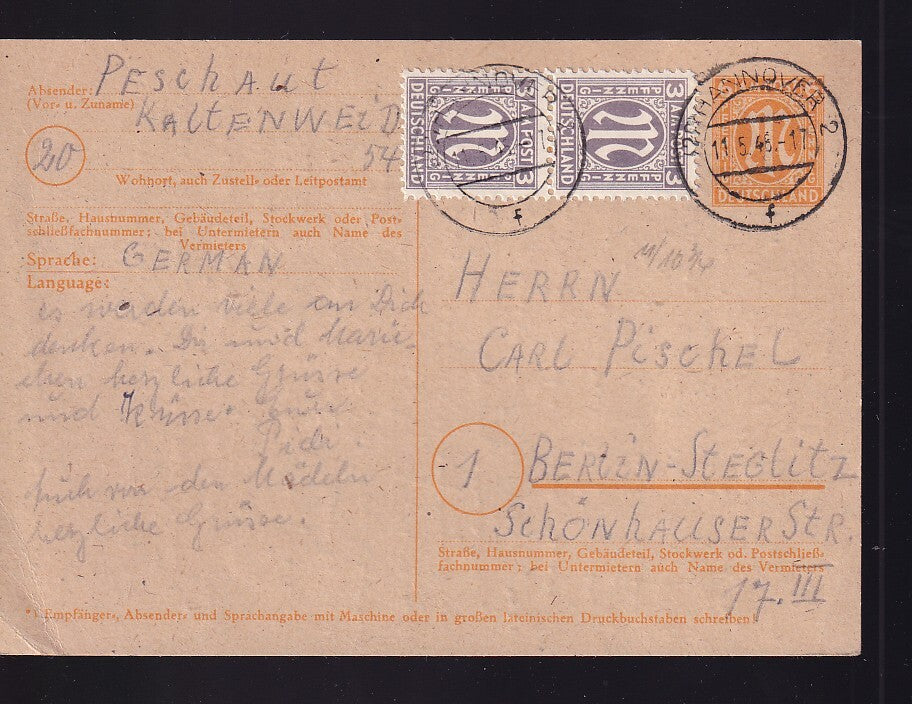 Absender: PESCHAUT
(Vor- u. Zuname)
KALTENWEID
20
54
Wohnort, auch Zustell- oder Leitpostamt
Straße, Hausnummer, Gebäudeteil, Stockwerk oder Post-
schließfachnummer; bei Untermietern auch Name des
Vermieters
Sprache: GERMAN
Language:
es werden viele an Dich
denken. Dir und Marie-
chen herzliche Grüsse
und Küsse. Eure
Didi.
Auch von den Mädeln
herzliche Grüsse.
3 AM POST 3
PFENNIG
DEUTSCHLAND
M
3 AM POST 3
PFENNIG
DEUTSCHLAND
M
HANNOVER 2
11.5.46.-17
f
DEUTSCHLAND
HERRN
CARL PISCHEL
1
BERLIN-STEGLITZ
SCHÖNHAUSER STR.
Straße, Hausnummer, Gebäudeteil, Stockwerk od. Postschließ-
fachnummer; bei Untermietern auch Name des Vermieters
17. III
*) Empfänger-, Absender- und Sprachangabe mit Maschine oder in großen lateinischen Druckbuchstaben schreiben!